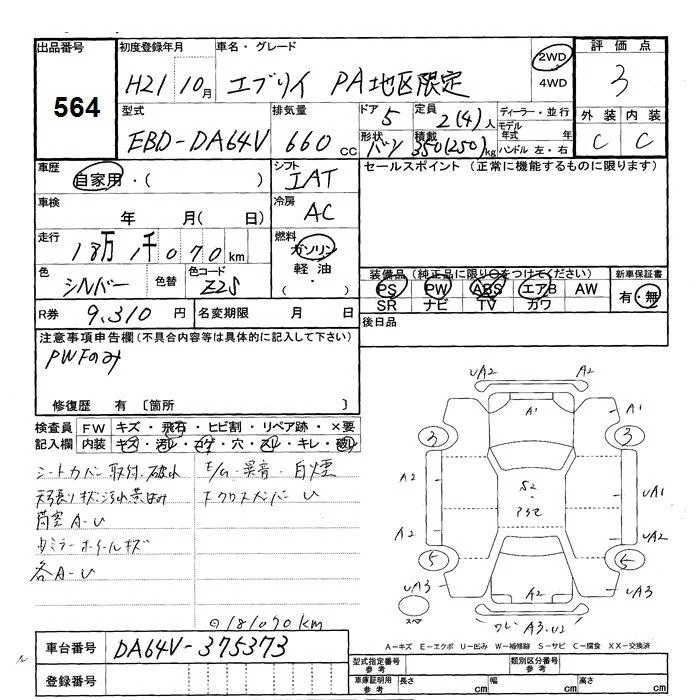 出品番号
564
初度登録年月
H21 10月
車名・グレード
エブリイ PA地区限定
2WD
4WD
評価点
3
外装 内装
C C
型式
EBD-DA64V
排気量
660 cc
ドア 5
定員 2(4)人
形状 バン
積載 350(250)kg
ディーラー・並行
モデル年式 年
ハンドル 左・右
車歴
自家用・( )
シフト
IAT
車検
年 月(日)
冷房
AC
走行
18万1千070km
燃料
ガソリン
軽油
・( )
色
シルバー
色替
色コード
Z2S
R券 9,310円
名変期限 月 日
セールスポイント(正常に機能するものに限ります)
装備品(純正品に限り○をつけてください)
PS PW ABS エアB AW
SR ナビ TV カワ
新車保証書
有・無
後日品
注意事項申告欄(不具合内容等は具体的に記入して下さい)
PWFのみ
修復歴 有〔箇所 〕
検査員記入欄
FW キズ・飛石・ヒビ割・リペア跡・×要
内装 キズ・汚レ・コゲ・穴・スレ・キレ・破レ
シートカバー取付・破れ
E/G異音・白煙
天張りキズ汚れ
FクロスメンバーU
荷室A-U
ミラーホイールキズ
各A-U
◎181070km
車台番号 DA64V-375373
登録番号
UA2 A2
A1 A1
3 3
A2 S2 UA1
A2 UA2
5 5
UA3 A2 UA3
スペ
ワレ A3.U2
A-キズ E-エクボ U-凹み W-補修跡 S-サビ C-腐食 XX-交換済
型式指定番号 参考
類別区分番号 参考
車庫証明用 参考
長さ cm 幅 cm 高さ cm